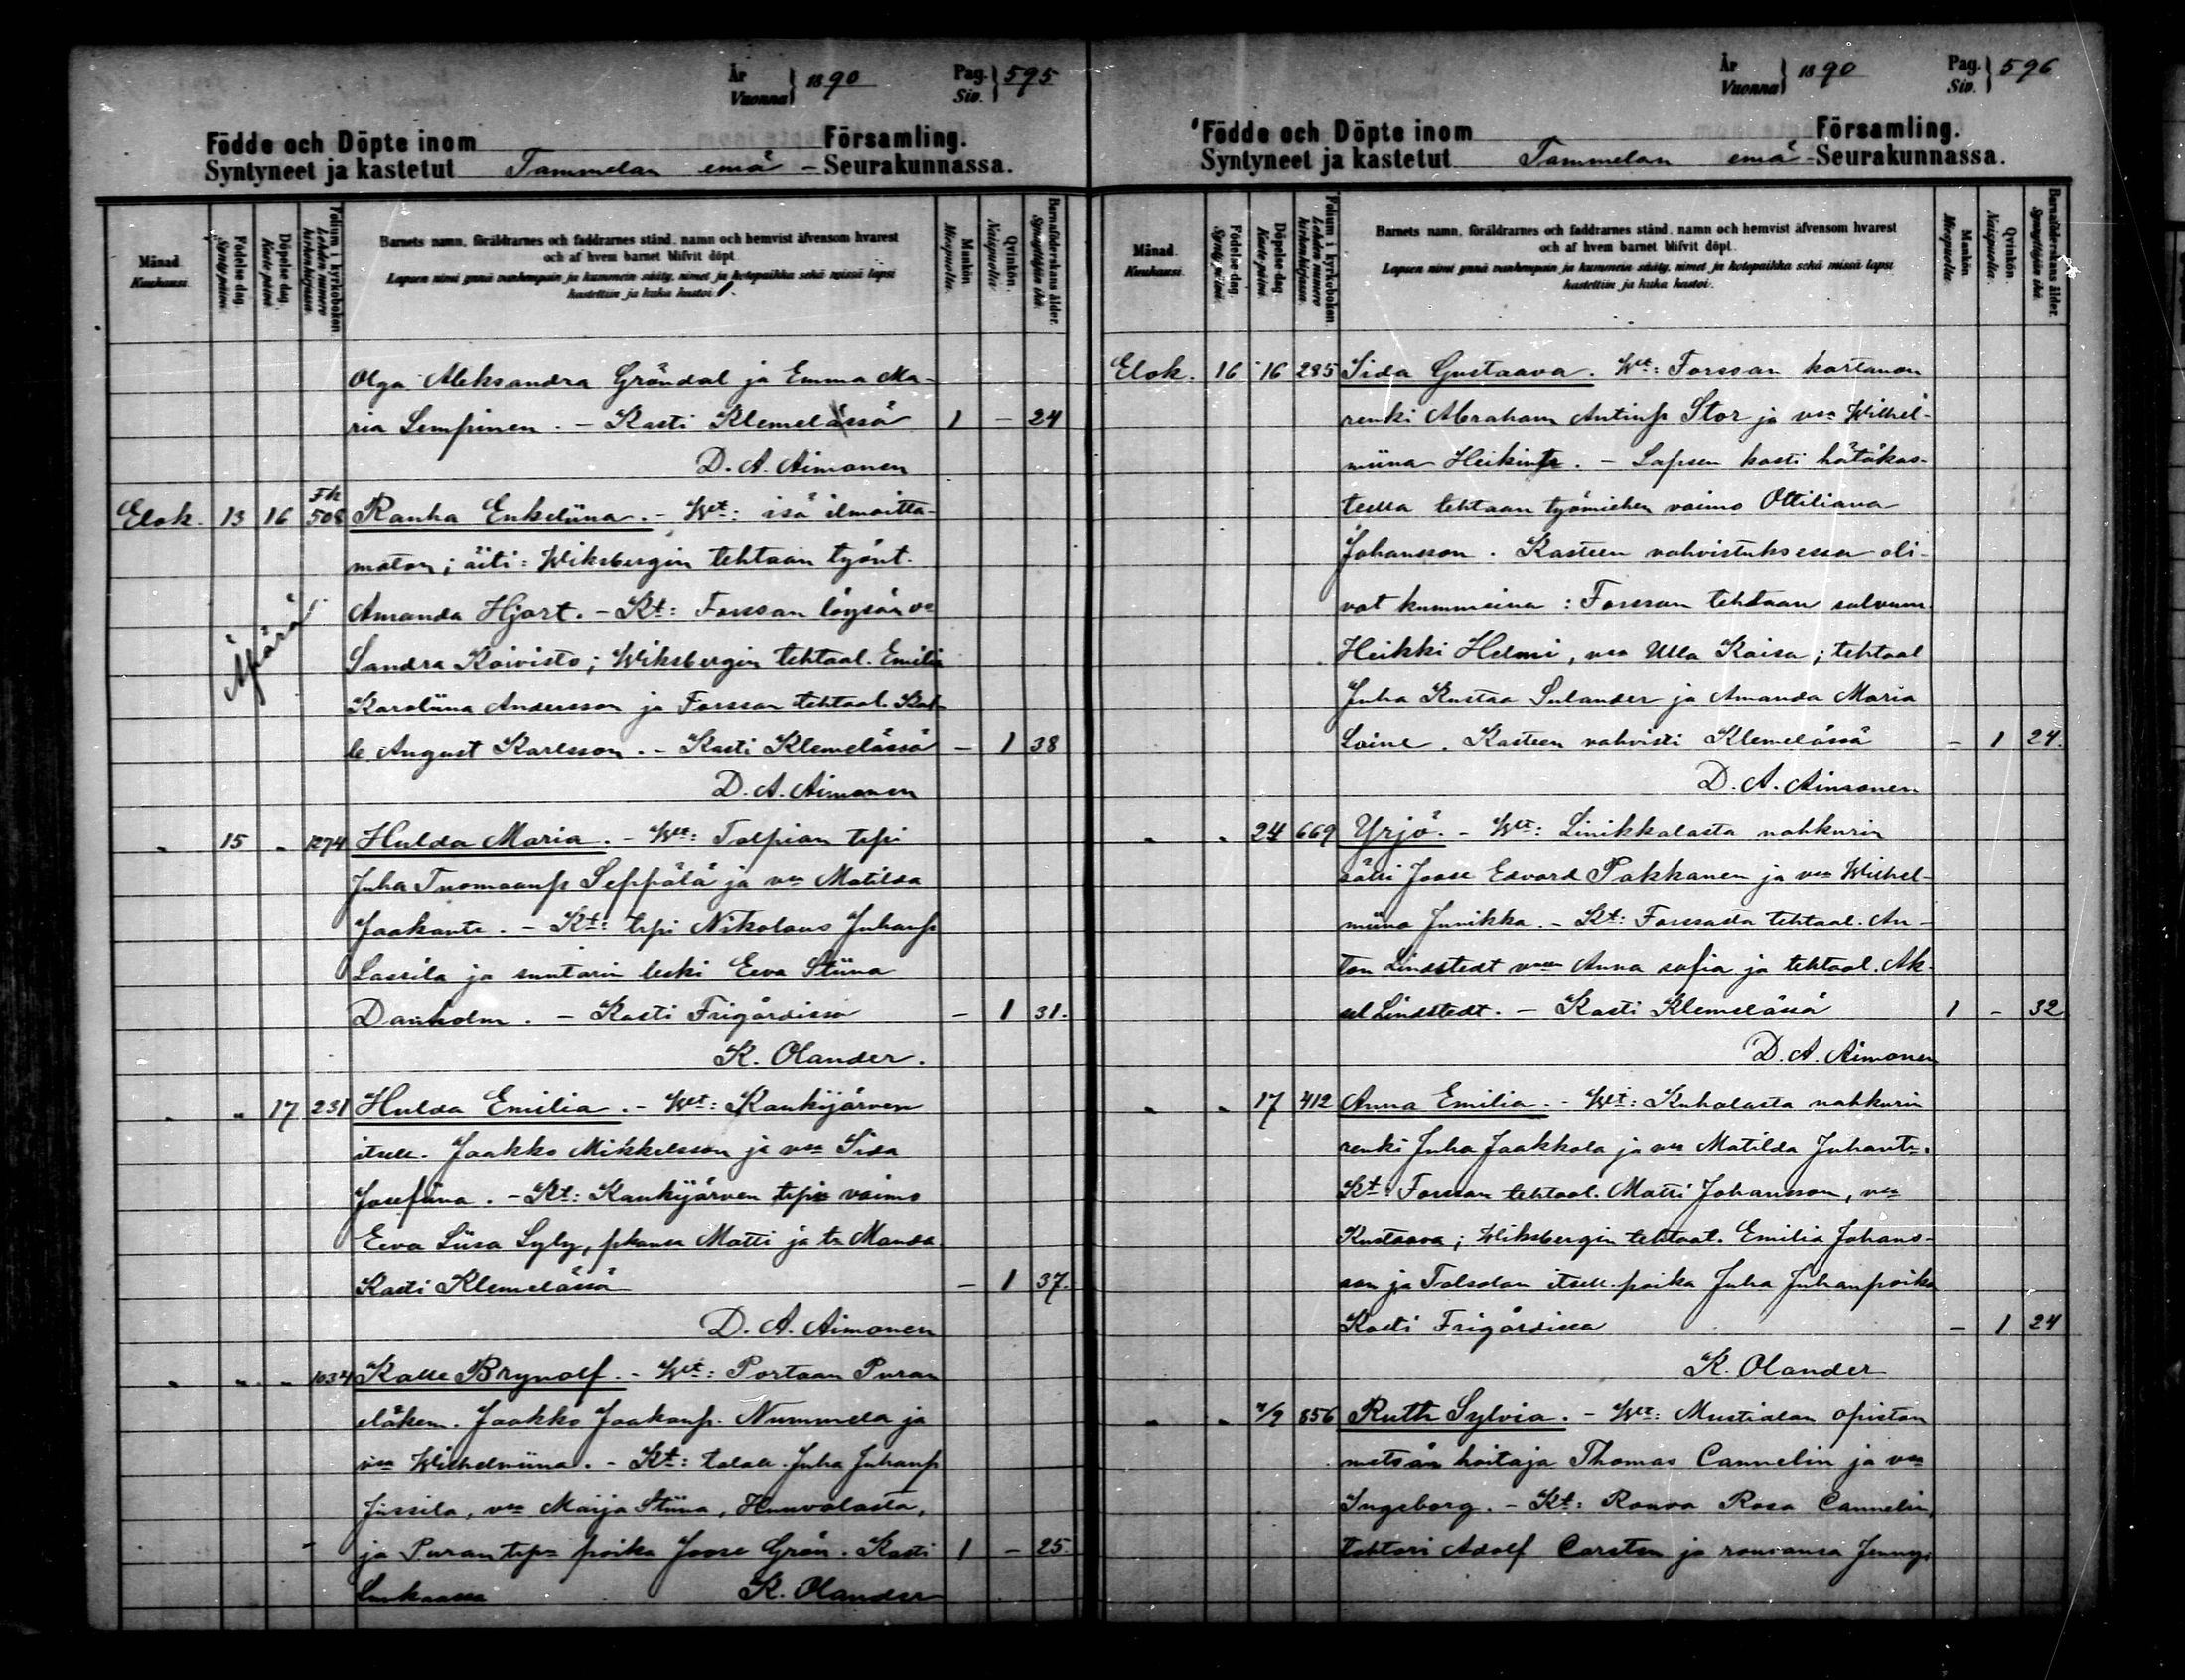 År
Vuonna } 1890
Pag.
Siv. } 595
Födde och Döpte inom Församling.
Syntyneet ja kastetut Tammelan emä – Seurakunnassa.
Månad.
Kuukausi.
Födelse dag.
Synty päivä.
Döpelse dag.
Kaste päivä.
Folium i kyrkoboken.
Lehden numero kirkonkirjassa.
Barnets namn, föräldrarnes och faddrarnes stånd, namn och hemvist äfvensom hvarest
och af hvem barnet blifvit döpt.
Lapsen nimi ynnä vanhempain ja kummein sääty, nimet ja kotopaikka sekä missä lapsi
kastettiin ja kuka kastoi.
Mankön.
Miespuolia.
Qvinkön.
Naispuolia.
Barnaföderskans ålder.
Synnyttäjän ikä.
Olga Aleksandra Gröndal ja Emma Ma-
ria Lempinen. – Kasti Klemelässä 1 – 24
D. A. Aimonen
Elok. 13 16 Fk 508 Rauha Enkeliina. – Wt: isä ilmoitta-
maton; äiti: Wiksbergin tehtaan työnt.
Amanda Hjort. – Kt: Forssan löysän va
Äpärä
Sandra Koivisto; Wiksbergin tehtaal. Emilia
Karoliina Andersson ja Forssan tehtaal. Kal-
le August Karlsson. – Kasti Klemelässä – 1 38
D. A. Aimonen
" 15 " 1274 Hulda Maria. – Wt: Talpian trpi
Juha Tuomaanp Seppälä ja vaa Matilda
Jaakontr. – Kt: trpi Nikolaus Juhanp
Lassila ja suntarin leski Eeva Stiina
Danholm. – Kasti Frigårdissa – 1 31.
K. Olander.
" " 17 231 Hulda Emilia. – Wt: Kaukijärven
itsell. Jaakko Mikkelsson ja vaa Iida
Josefiina. – Kt: Kaukijärven trpin vaimo
Eeva Liisa Syly, pkansa Matti ja tr Manda
Kasti Klemelässä – 1 37.
D. A. Aimonen
" " " 1034 Kalle Brynolf. – Wt: Portaan Puran
eläkem. Jaakko Jaakonp. Nummela ja
vaa Wilhelmiina. – Kt: talall. Juha Juhanp
Jussila, vaa Maija Stiina, Hunvolasta,
ja Puran trpn poika Joose Grön. Kasti 1 – 25.
Lunkaassa K. Olander
År
Vuonna } 1890
Pag.
Siv. } 596
Födde och Döpte inom Församling.
Syntyneet ja kastetut Tammelan emä – Seurakunnassa.
Månad.
Kuukausi.
Födelse dag.
Synty päivä.
Döpelse dag.
Kaste päivä.
Folium i kyrkoboken.
Lehden numero kirkonkirjassa.
Barnets namn, föräldrarnes och faddrarnes stånd, namn och hemvist äfvensom hvarest
och af hvem barnet blifvit döpt.
Lapsen nimi ynnä vanhempain ja kummein sääty, nimet ja kotopaikka sekä missä lapsi
kastettiin ja kuka kastoi.
Mankön.
Miespuolia.
Qvinkön.
Naispuolia.
Barnaföderskans ålder.
Synnyttäjän ikä.
Elok. 16 16 285 Iida Gustaava. Wt: Forssan kartanon
renki Abraham Antinp Stor ja vaa Wilhel-
miina Heikintr. – Lapsen kasti hätäkas-
teella tehtaan työmiehen vaimo Ottiliana
Johansson. Kasteen vahvistuksessa oli-
vat kummeina: Forssan tehtaan salvum.
Heikki Helmi, vaa Ulla Kaisa; tehtaal
Juha Kustaa Sulander ja Amanda Maria
Laine. Kasteen vahvisti Klemelässä – 1 24.
D. A. Aimonen
" " 24 669 Yrjö. – Wt: Linikkalasta nahkurin
sälli Joose Edvard Pakkanen ja vaa Wilhel-
miina Junikka. – Kt: Forssasta tehtaal. An-
ton Lindstedt vaa Anna sofia ja tehtaal. Ak-
sel Lindstedt. – Kasti Klemelässä 1 – 32
D. A. Aimonen
" " 17 412 Anna Emilia. – Wt: Kuhalasta nahkurin
renki Juha Jaakkola ja vaa Matilda Juhantr.
Kt: Forssan tehtaal. Matti Johansson, vaa
Kustaava; Wiksbergin tehtaat. Emilia Johans-
son ja Talsolan itsell. poika Juha Juhanpoika
Kasti Frigårdissa – 1 24
K. Olander
" " 7/9 856 Ruth Sylvia. – Wt: Mustialan opiston
metsän hoitaja Thomas Cannelin ja vaa
Ingeborg. – Kt: Rouva Rosa Cannelin,
tohtori Adolf Carsten ja rouvansa Jenny;